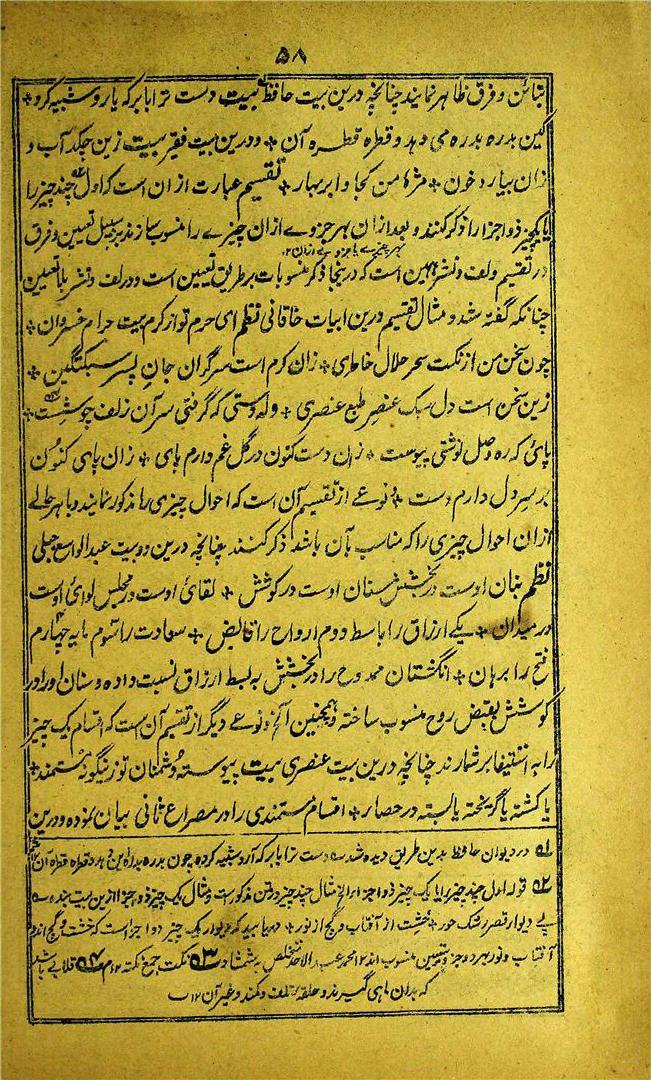 ۵۸
تبائن و فرق ظاہر نمایند چنانچہ درین بیت حافظ بیت دست ترا بابر کہ یارد شبیہ کرد ÷
کین بدرہ بدرہ می دہد و قطرہ قطرہ آن ÷ و درین بیت فقیر بیت زین چکد آب و
زان ببارد خون ÷ مژۂ من کجا و ابر بہار ÷ تقسیم عبارت ازان است کہ اول چند چیز را
یا یکچیز ذو اجزا را ذکر کنند و بعد ازان بہر جزوے ازان چیزے را منسوب سازند بر سبیل تعیین و فرق
بہر چیزے یا جزوے ازان ۱۲
در تقسیم و لف و نشر ہمین است کہ درینجا ذکر منسوبات بر طریق تعیین است و در لف و نشر بلا تعیین
چنانکہ گفتہ شد و مثال تقسیم درین ابیات خاقانی نظم ای حرم تو از کرم بیت حرام خسروان ÷
چون سخن من از نکت سحر حلال خاطری ÷ زان کرم است سرگران جان پسر سبکتگین ÷
زین سخن است دل سبک عنصر طبع عنصری ÷ ولہ دستی کہ گرفتی سر آن زلف چو شست ÷
پائ کہ رہ وصل نوشتی پیوست ÷ زان دست کنون در گل غم دارم پای ÷ زان پای کنون
بر سر دل دارم دست ÷ و نوعے از تقسیم آن است کہ احوال چیزی را مذکور نمایند و با ہر حالے
ازان احوال چیزی را کہ مناسب بآن باشد ذکر کنند چنانچہ درین دو بیت عبد الواسع جبلی
نظم بنان اوست در بخشش سنان اوست در کوشش ÷ لقائ اوست در مجلس لوائ اوست
در میدان ÷ یکے ارزاق را باسط دوم ارواح را قابض ÷ سعادت را سوم مایہ چہارم
فتح را برہان ÷ انگشتان ممدوح را در بخشش بہ بسط ارزاق نسبت دادہ و سنان او را در
کوشش بقبض روح منسوب ساختہ و ہمچنین آلخ و نوعے دیگر از تقسیم آن است کہ اقسام یک چیز
را بہ استیفا بر شمارند چنانچہ درین بیت عنصری بیت پیوستہ دشمنان تو زینگونہ مستمند ÷
یا کشتہ یا گریختہ یا بستہ در حصار ÷ اقسام مستمندی را در مصراع ثانی بیان نمودہ و درین
۵۱ در دیوان حافظ بدین طریق دیدہ شد دست ترا بابر کہ آرد شبیہ کردہ چون بدرہ بدرہ این دہد و قطرہ قطرہ آن
۵۲ قولہ اول چند چیز را یا یک چیز ذو اجزا الخ مثال چند چیز در متن مذکورست و مثال یک چیز ذو اجزا ازین بیت
پے دیوار قصر رشک حور ÷ خشت از آفتاب و گچ از نور ÷ دیوار یک چیز ذو اجزاست کہ خشت و گچ اند
آفتاب و نور بہر دو جزو بتعیین منسوب اند ۱۲ محمد عبد الاحد متخلص بہ شمشاد ۵۳ نکت جمع نکتہ ۱۲ م ۵۴ قلابے باشد
کہ بدان ماہی گیرند و حلقۂ زلف و کمند و غیر آن ۱۲ ب